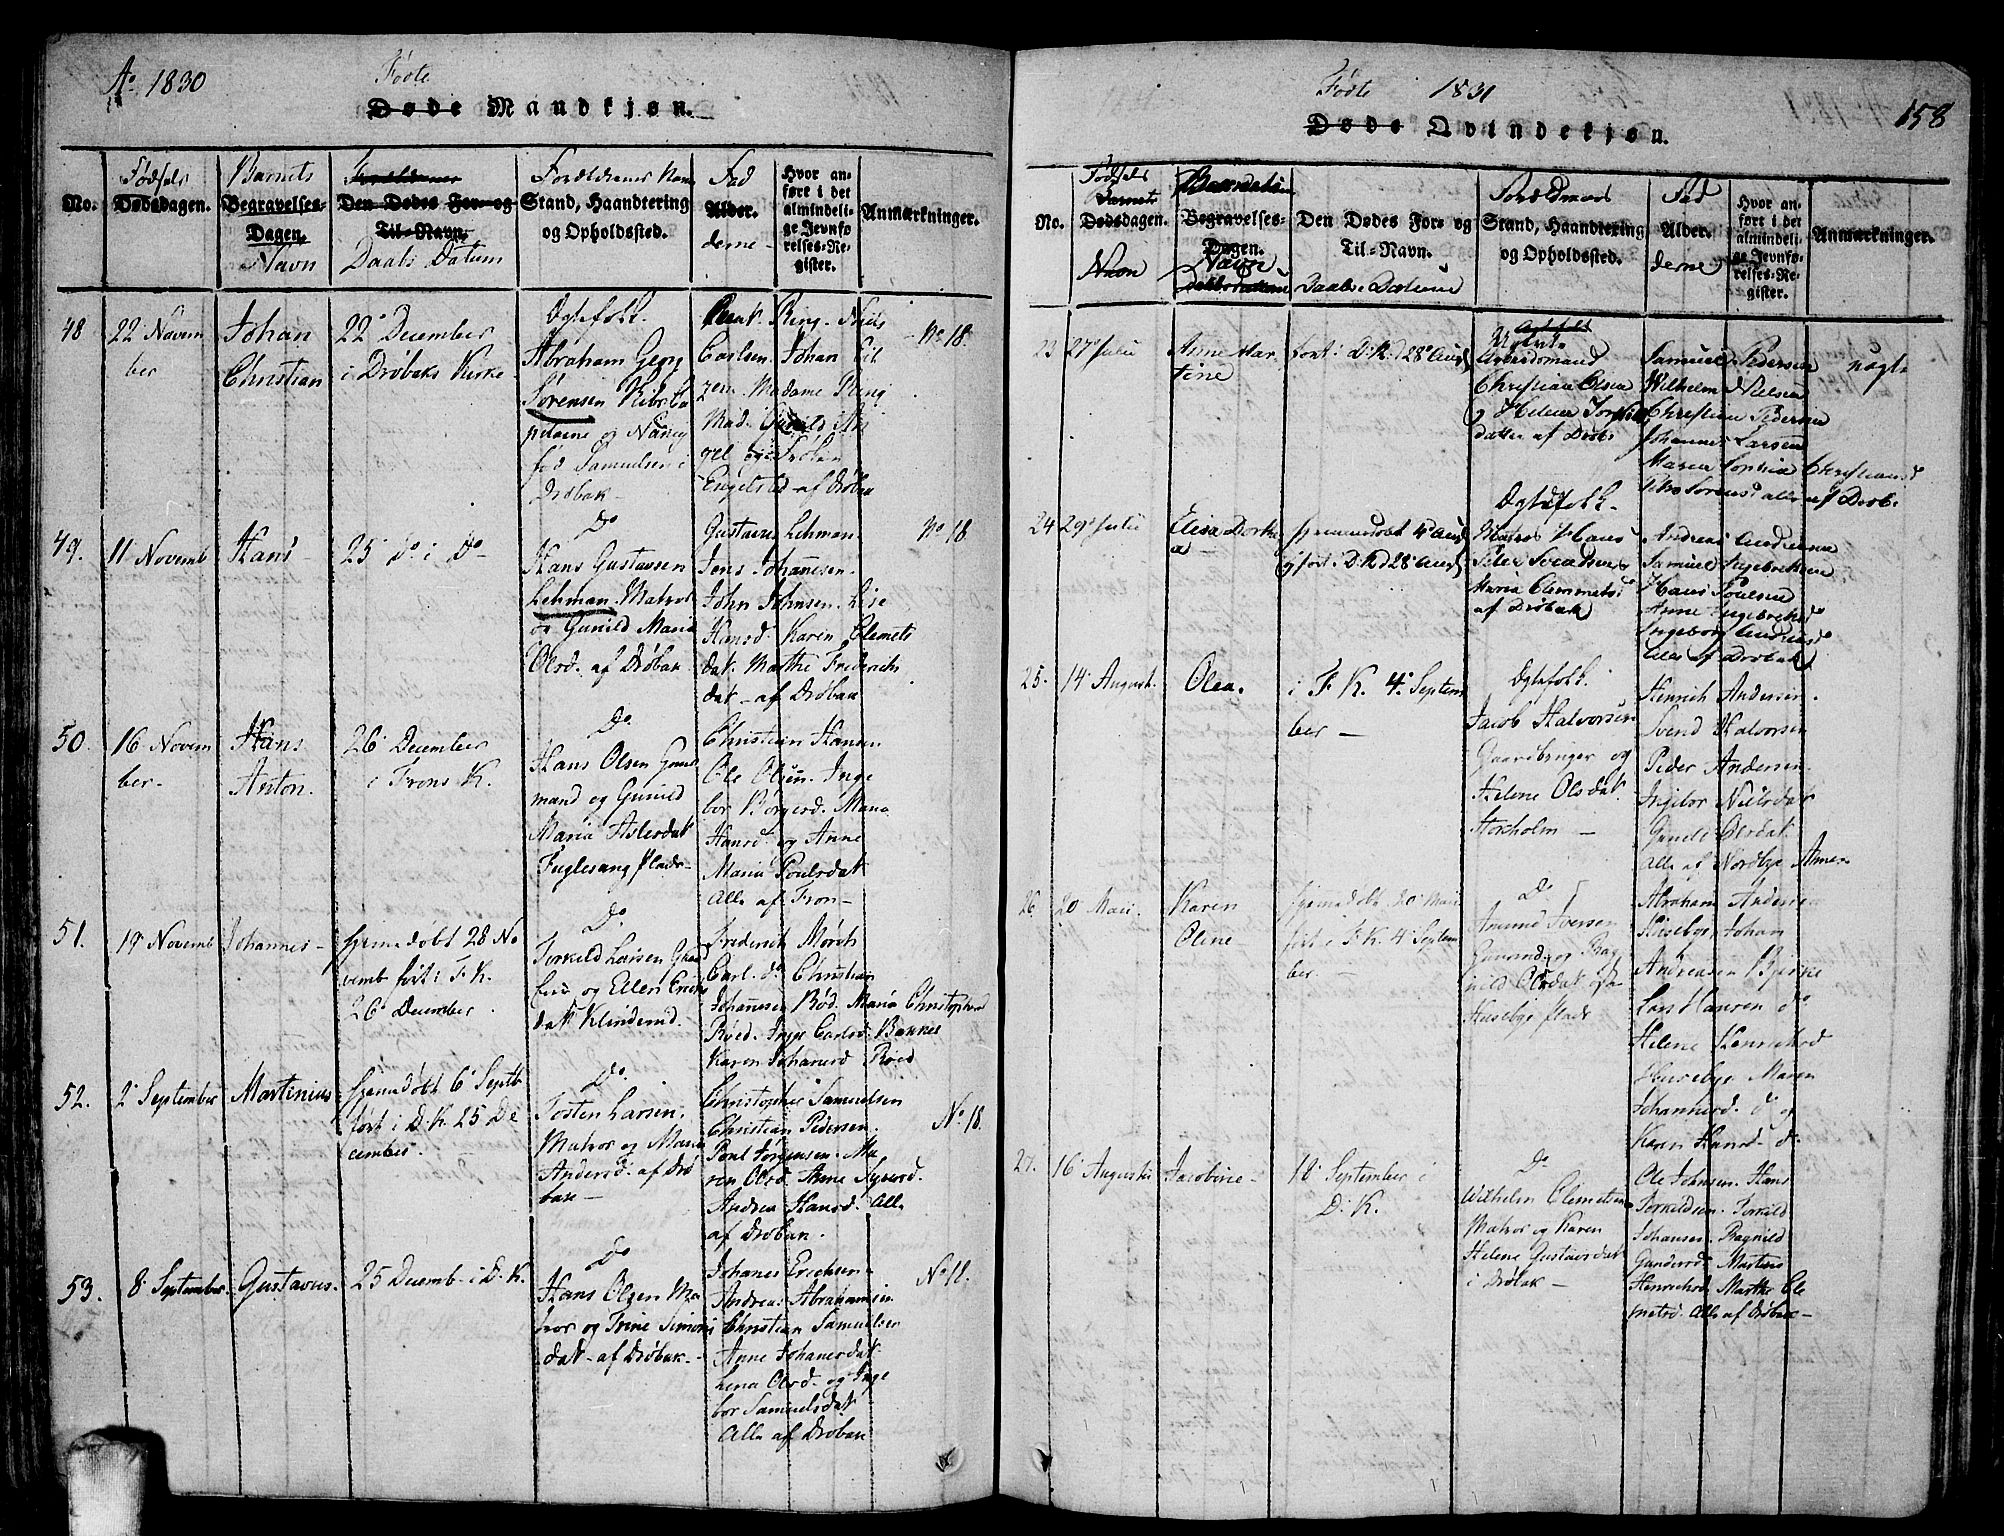 Ao 1830
Fødte
Døde Mandkjøn.
No.
Fødsels
Dødsdagen.
Barnets
Begravelses-
Dagen.
Navn
Forældrenes
Den Dødes For- og
Til-Navn.
Daabs Datum
Forældrenes Navn
Stand, Haandtering
og Opholdssted.
Fad
Alder.
derne
Hvor an-
ført i det
almindeli-
ge Jevnfø-
relses-Re-
gister.
Anmærkninger.
48
22 Novem
ber
Johan
Christian
22 December
i Drøbaks Kirke
Ægtefolk.
Abraham Georg
Sørensen
og Nancy
fød Samuelsen i
Drøbak
Ring. Niels
Carlsen. Johan
Madame Ring
Mad. Gunild
Engelsted af Drøbak
No 18.
49.
11 Novemb
Hans
25 Do i Do
Do
Hans Gustavsen
Lehman. Matros
og Gunild Maria
Olsd. af Drøbak
Gustaves Lehman.
Jens Johanesen.
John Johnsen. Lise
Hansd. Karen Clemets
dat. Marthe Frederichs
dat. af Drøbak
No 18
50.
16 Novem
ber.
Hans
Anton.
26 December
i Frons K.
Do
Hans Olsen Gaard
mand og Gunild
Maria Aslesdat
Fuglesang Plads
Christian Hansen
Ole Olsen. Inge
bor Børgerd. Maria
Hansd. og Anne
Maria Poulsdat
Alle af Fron
51.
19 Novemb
Johannes
hjemedøbt 28 No
vemb ført i F. K.
26 December.
Do
Torkild Larsen
og Ellen Erichs
dat Klinderud.
Frederich Mørch
Carl do Christian
Johannesen Rød. Maria Christophersd
Røed. Inge Carlsd. Bakkes
Karen Johanesd Røed
52.
2 September
Martinius
hjemedøbt 6 Septb
ført i D. K. 25 De
cember.
Do
Tosten Larsen.
Matros og Maria
Andersd. af Drø
bak
Christopher Samuelsen
Christian Pedersen.
Poul Jørgensen. Ma
ren Olsd. Anne
Andrea Hansd. Alle
af Drøbak.
No 18.
53.
8 September.
Gustavus.
25 Decemb. i D. K.
Do
Hans Olsen Ma
tros og Trine Simons
dat. af Drøbak
Johanes Erichsen
Andreas Abrahamsen
Christian Samuelsen
Anne Johanesdat
Lena Olsd. og Inge
bor Samuelsdat
Alle af Drøbak
No 18.
Fødte 1831
158
Døde Qvindekjøn.
No.
Fødsels
Barnets
Dødsdagen.
Navn
Begravelses-
Dagen.
Navn
Den Dødes For- og
Til-Navn.
Daabs Datum
Forældrenes
Stand, Haandtering
og Opholdssted.
Fad
Alder.
derne
Hvor an-
ført i det
almindeli-
ge Jevnfø-
relses-Re-
gister.
Anmærkninger.
23
27 Julii
Anne Mar
tine
ført i D.K. d 28 Aug
Ægtefolk
Arbeidsmand
Christian Olsen
og Helene
datter af Drøb:
Samuel Pedersen
Wilhelm Nielsen
Christian Pedersen
Johannes Larsen
Maren Sophia Christians
alle af Drøb.
uægte
24
29 Julii
Elisa Dorthe
a
hjemmedøbt 4 Aug
og ført i D.K. d 28 Aug
Ægtefolk.
Matros Hans
Peter Svendsen
Maria Clemmetsd
af Drøbak
Andreas Andersen
Samuel Ingebretsen
Hans Poulsen
Anne Ingebretsd
Ingebor Andreasd
alle af Drøbak
25.
14 August.
Olea.
i F. K. 4 Septem
ber
Ægtefolk.
Jacob Halvorsen
Gaardbruger og
Helene Olsdat
Storholm
Henrich Andersen.
Svend Halvorsen
Peder Andersen.
Ingebor Nielsdat
Gunild Olesdat
Alle af Nordbye Annex
26
20 Maii.
Karen
Oline
hjemmedøbt 20 Maii
ført i F. K. 4 Septem
ber.
Do
Amund Iversen
Gaarmd. og Rag
nild Olesdat
Husebye plads
Abraham Andersen
Husebye, Johan
Andreasen Bjerke
Lars Hansen do
Helene Henrichsd
Husebye. Maren
Johannesd. do og
Karen Hansd. do
27.
16 Augusti
Jacobine
18 September i
D. K.
Do
Wilhelm Clemetsen
Matros og Karen
Helene Gustavsdat
i Drøbak
Ole Johnsen. Hans
Torkildsen. Torkild
Johansen. Ragnild
Gundersd. Martins
Henrichsd Marthe Cle
metsd. Alle af Drøbak